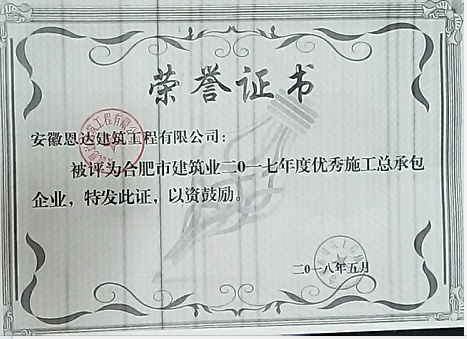 荣誉证书
安徽恩达建筑工程有限公司：
被评为合肥市建筑业二0一七年度优秀施工总承包
企业，特发此证，以资鼓励。
二0一八年五月